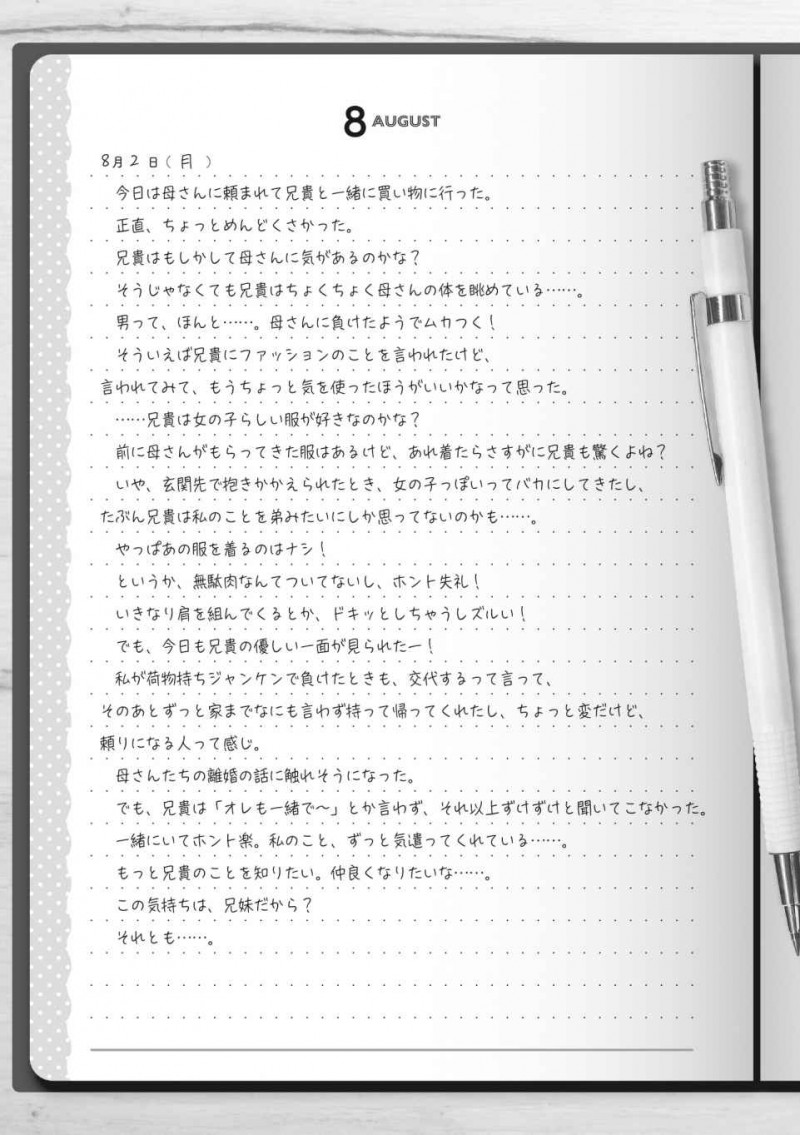 8 AUGUST
8月2日(月)
今日は母さんに頼まれて兄貴と一緒に買い物に行った。
正直、ちょっとめんどくさかった。
兄貴はもしかして母さんに気があるのかな?
そうじゃなくても兄貴はちょくちょく母さんの体を眺めている……。
男って、ほんと……。母さんに負けたようでムカつく!
そういえば兄貴にファッションのことを言われたけど、
言われてみて、もうちょっと気を使ったほうがいいかなって思った。
……兄貴は女の子らしい服が好きなのかな?
前に母さんがもらってきた服はあるけど、あれ着たらさすがに兄貴も驚くよね?
いや、玄関先で抱きかかえられたとき、女の子っぽいってバカにしてきたし、
たぶん兄貴は私のことを弟みたいにしか思ってないのかも……。
やっぱあの服を着るのはナシ!
というか、無駄肉なんてついてないし、ホント失礼!
いきなり肩を組んでくるとか、ドキッとしちゃうしズルい!
でも、今日も兄貴の優しい一面が見られたー!
私が荷物持ちジャンケンで負けたときも、交代するって言って、
そのあとずっと家までなにも言わず持って帰ってくれたし、ちょっと変だけど、
頼りになる人って感じ。
母さんたちの離婚の話に触れそうになった。
でも、兄貴は「オレも一緒で〜」とか言わず、それ以上ずけずけと聞いてこなかった。
一緒にいてホント楽。私のこと、ずっと気遣ってくれている……。
もっと兄貴のことを知りたい。仲良くなりたいな……。
この気持ちは、兄妹だから?
それとも……。